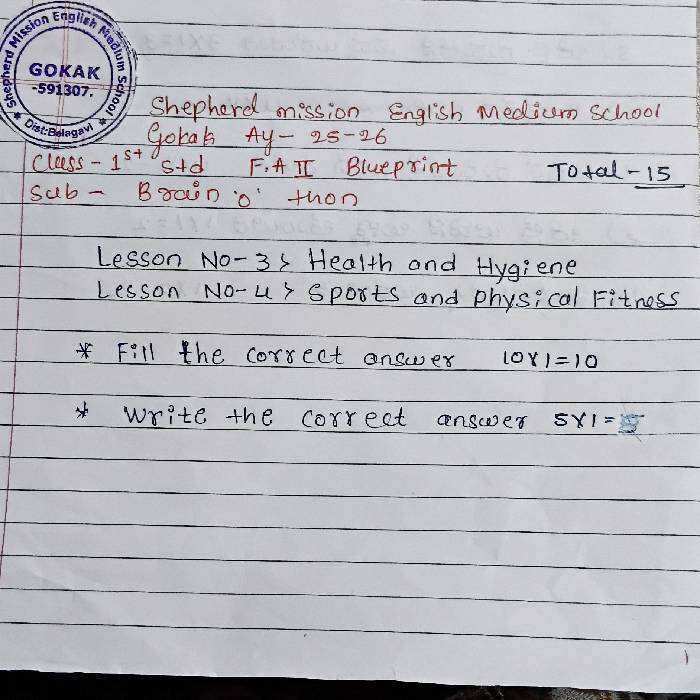 Shepherd Mission English Medium School
GOKAK
-591307.
Dist:Belagavi
Shepherd mission English Medium School
Gokak Ay- 25-26
Class - 1st Std F.A II Blueprint Total - 15
Sub - Brain 'o' thon
Lesson No- 3> Health and Hygiene
Lesson No- 4> Sports and physical Fitness
* Fill the correct answer 10X1=10
* Write the correct answer 5X1=5